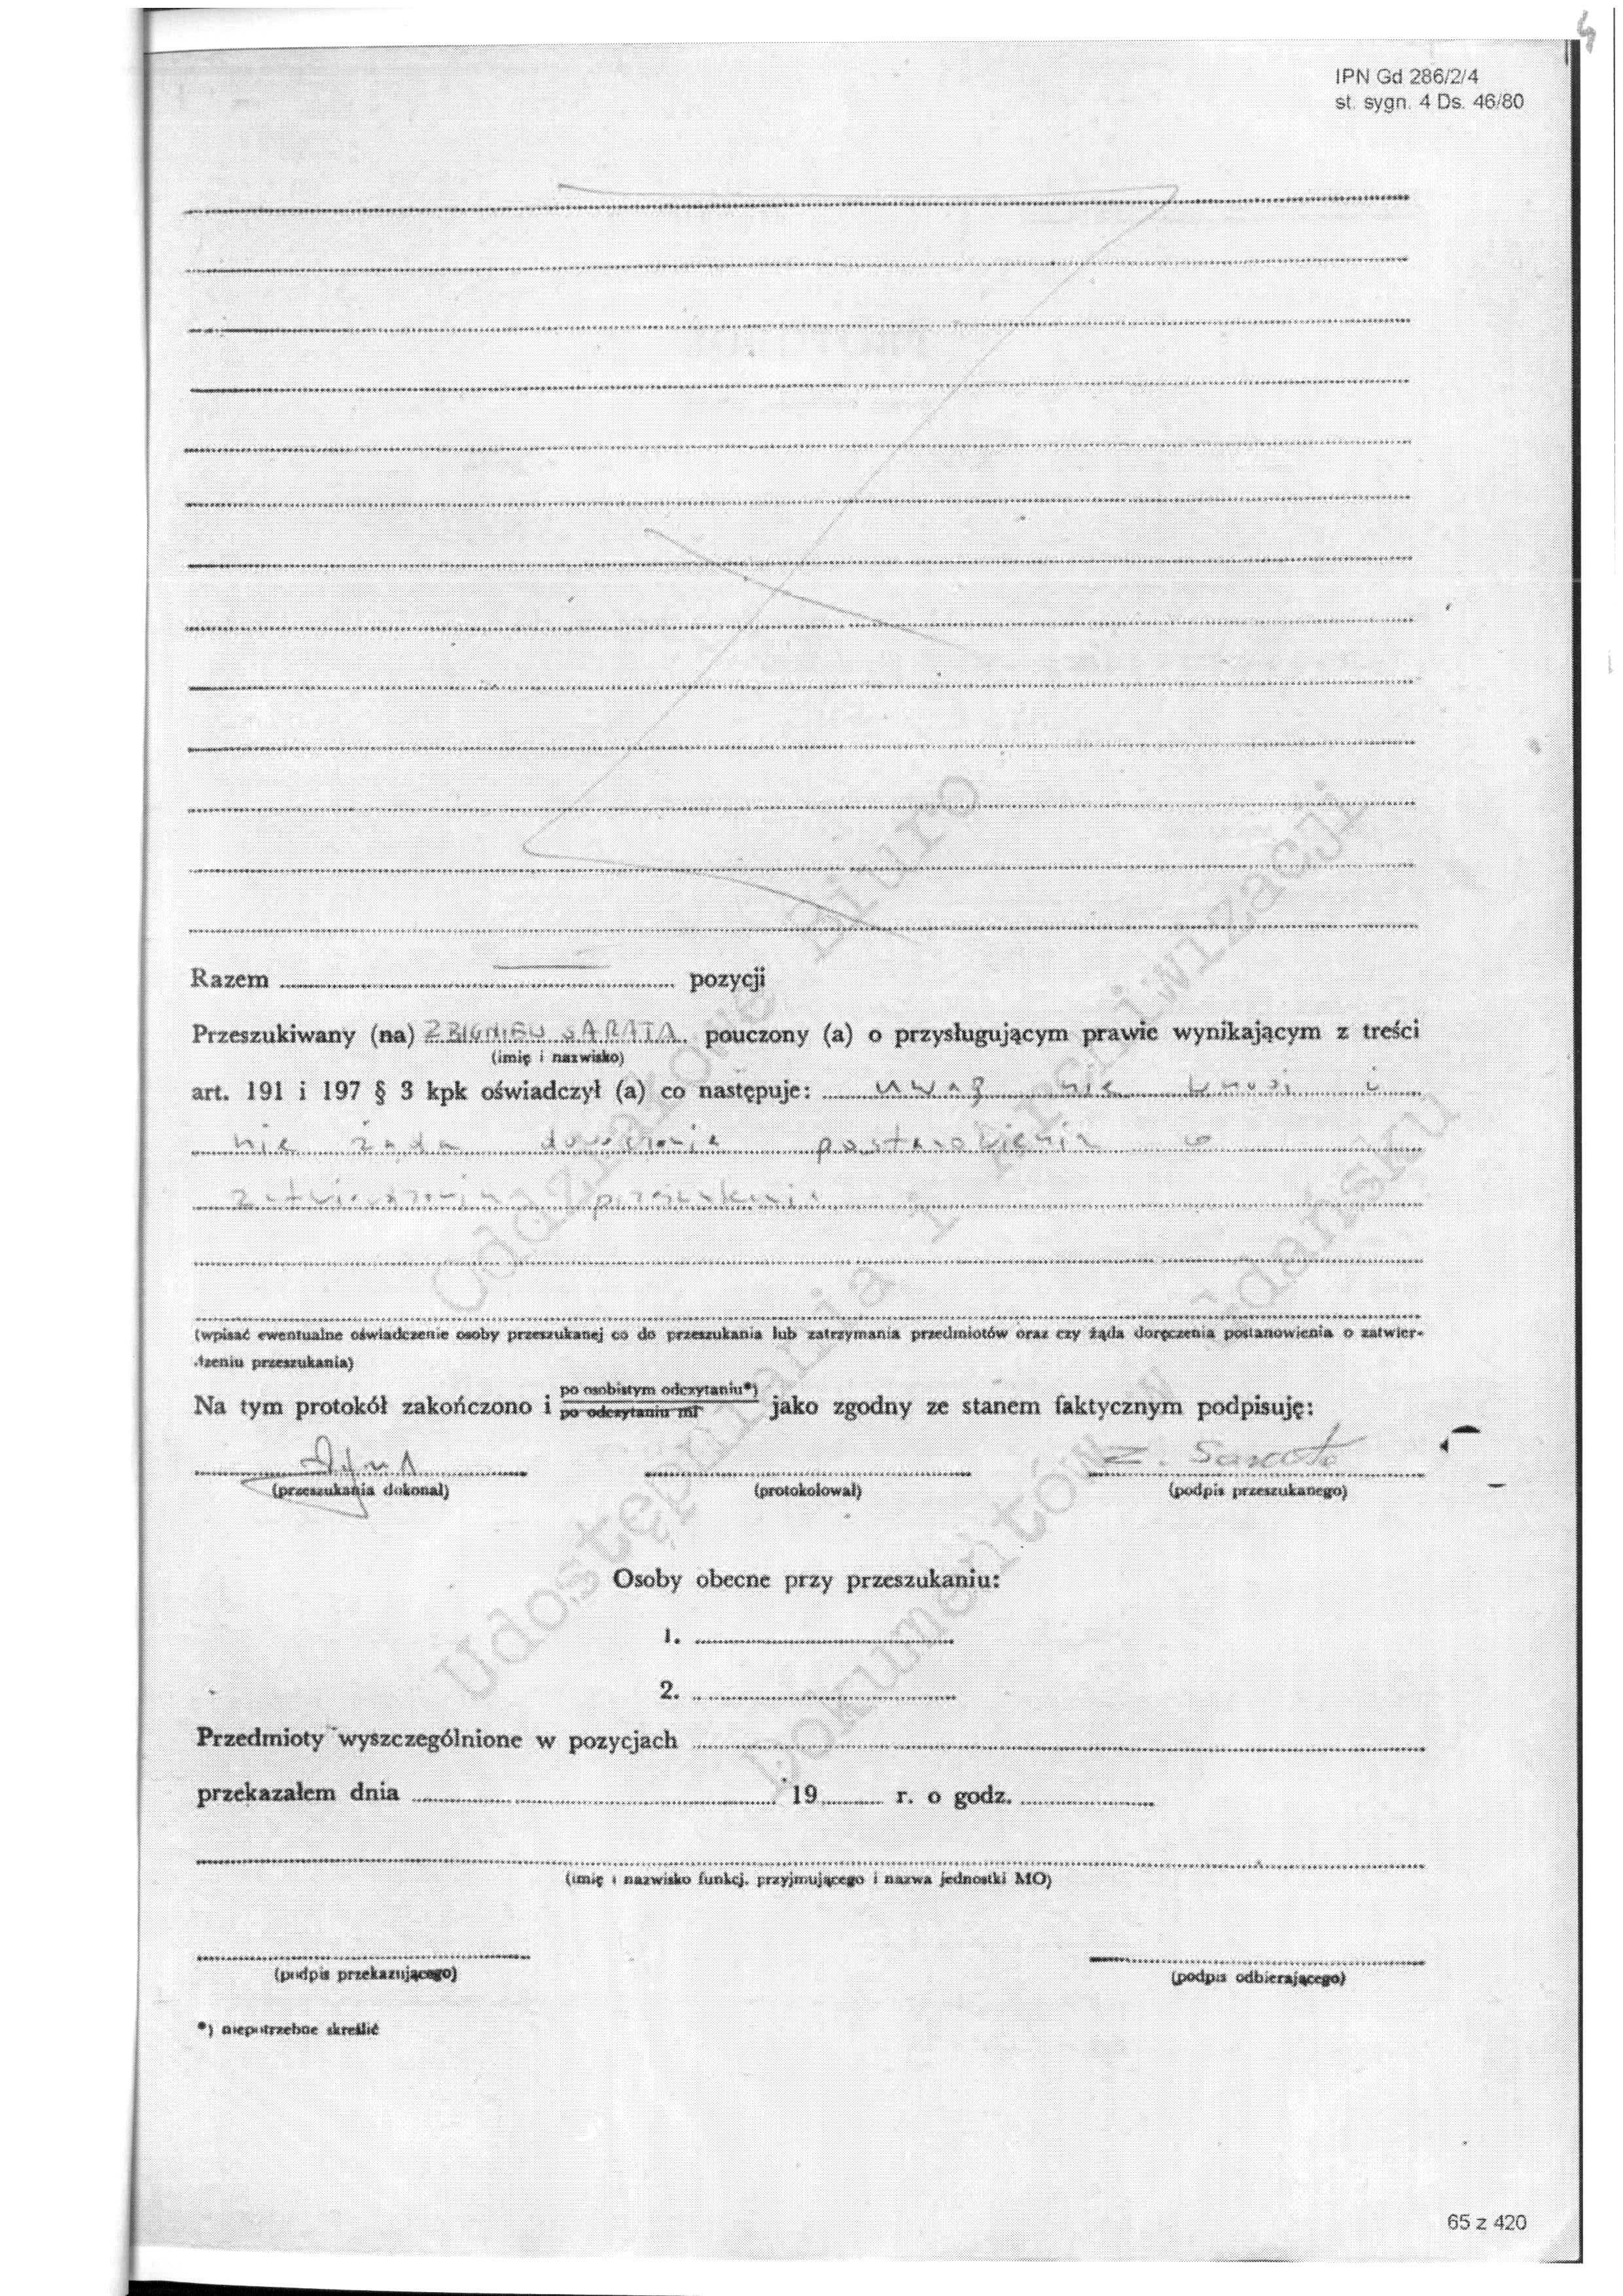 IPN Gd 286/2/4
st. sygn. 4 Ds. 46/80
Razem pozycji
Przeszukiwany (na) ZBIGNIEW SARATA pouczony (a) o przysługującym prawie wynikającym z treści
(imię i nazwisko)
art. 191 i 197 § 3 kpk oświadczył (a) co następuje: uwag nie wnosi i
nie żąda doręczenia postanowienia o
zatwierdzeniu przeszukania
(wpisać ewentualne oświadczenie osoby przeszukanej co do przeszukania lub zatrzymania przedmiotów oraz czy żąda doręczenia postanowienia o zatwier-
dzeniu przeszukania)
Na tym protokół zakończono i po osobistym odczytaniu*) po odczytaniu mi jako zgodny ze stanem faktycznym podpisuję:
Z. Sarata
(przeszukania dokonał) (protokołował) (podpis przeszukanego)
Osoby obecne przy przeszukaniu:
1.
2.
Przedmioty wyszczególnione w pozycjach
przekazałem dnia 19 r. o godz.
(imię i nazwisko funkcj. przyjmującego i nazwa jednostki MO)
(podpis przekazującego) (podpis odbierającego)
*) niepotrzebne skreślić
Oddziałowe Biuro
Udostępniania i Archiwizacji
Dokumentów w Gdańsku
65 z 420